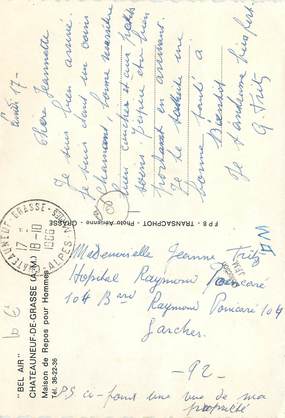 Lundi 17 -
Chère Jeannette
Je suis bien arrivé.
Je suis dans un coin
charmant, bonne nourriture
bien coucher et aux petits
soins. J'espère être bien
prochain en arrivant.
Je te souhaite une
bonne santé à
Bientôt
Je t'embrasse bien fort
G. Fritz
F P B - TRANSACPHOT - Photo Aérienne - GRASSE
CHATEAUNEUF-GRASSE-
17 -
18-10
1966
ALPES-
Mademoiselle Jeanne Fritz
Hopital Raymond Poincaré
104 Bard Raymond Poincaré 104
Garches.
- 92 -
"BEL AIR"
CHATEAUNEUF-DE-GRASSE (A.-M.)
Maison de Repos pour Hommes
Tél. 36-22-36
PS ci-joint une vue de ma
propriété